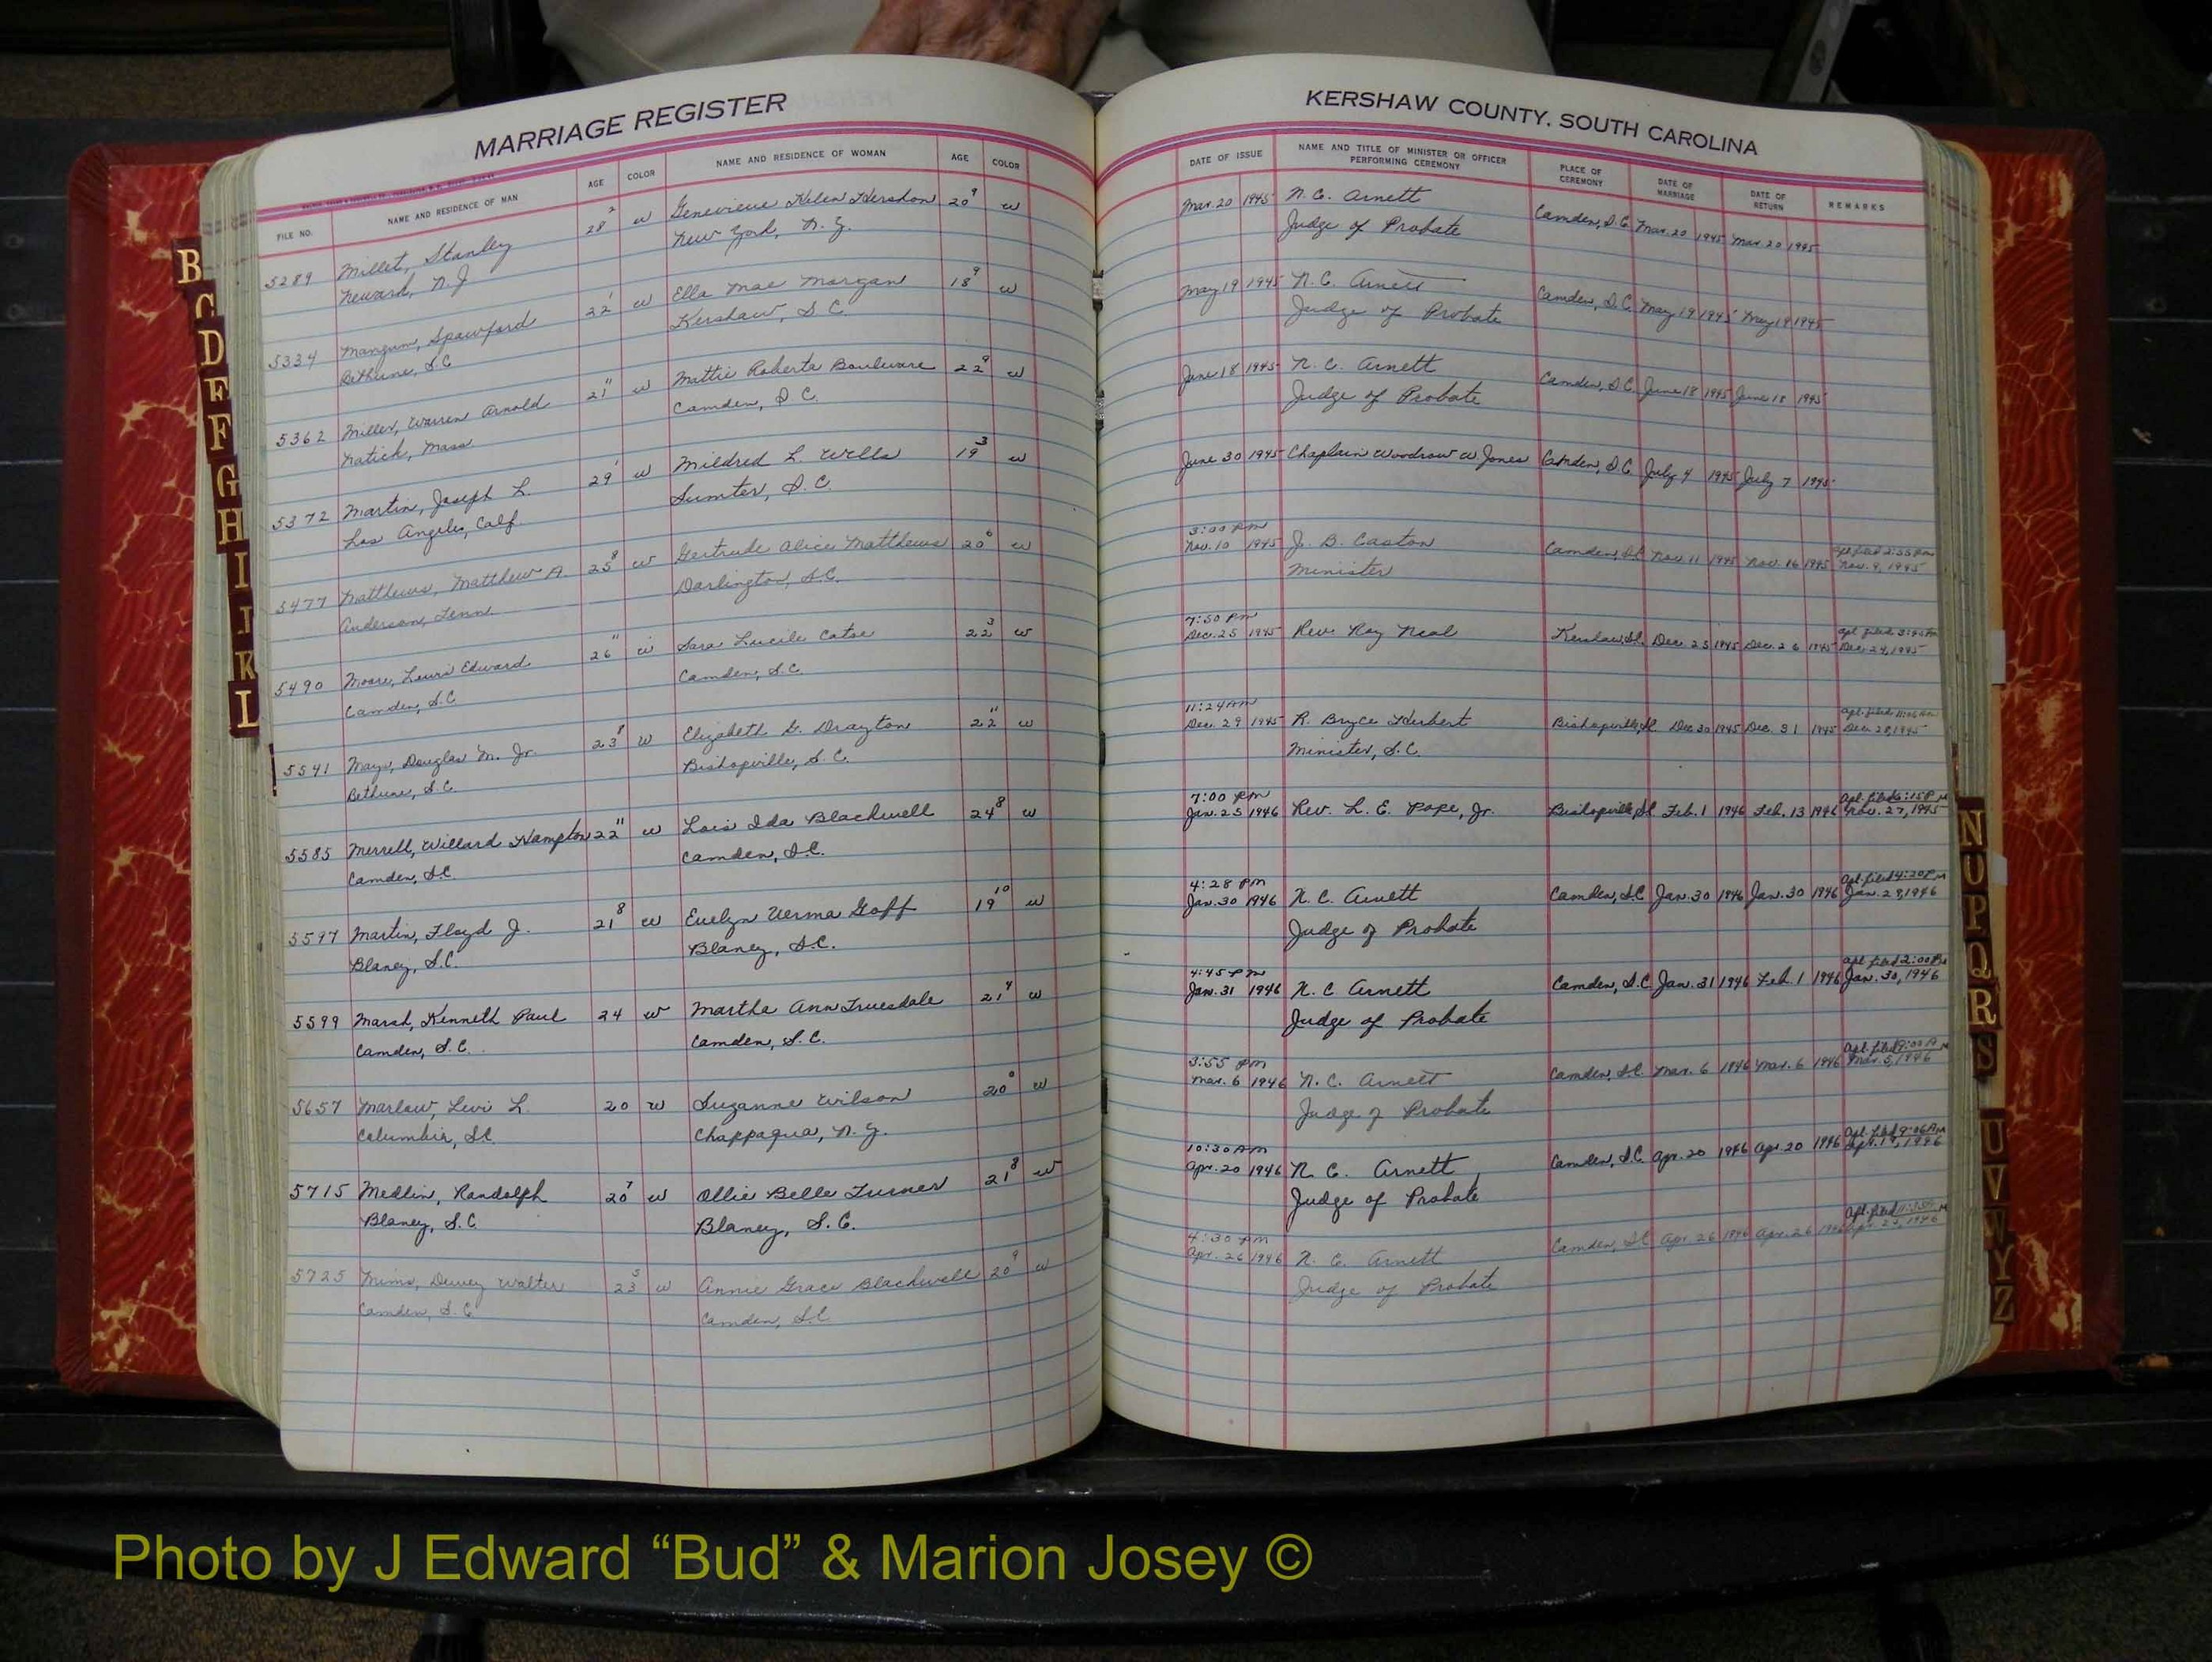 MARRIAGE REGISTER
FILE NO. NAME AND RESIDENCE OF MAN AGE COLOR NAME AND RESIDENCE OF WOMAN AGE COLOR
5289 Millet, Stanley 28 2 w Genevieve Helen Hershon 20 9 w
Newark, N.J. New York, N.Y.
5334 Mangum, Spawford 22 1 w Ella Mae Morgan 18 9 w
Bethune, S.C. Kershaw, S.C.
5362 Miller, Warren Arnold 21 11 w Mattie Roberta Boulware 22 9 w
Natick, Mass Camden, S.C.
5372 Martin, Joseph L. 29 1 w Mildred L. Wells 19 3 w
Los Angeles, Calf. Sumter, S.C.
5477 Matthews, Matthew A. 25 8 w Gertrude Alice Matthews 20 6 w
Anderson, Tenn. Darlington, S.C.
5490 Moore, Lewis Edward 26 11 w Sara Lucile Catoe 22 3 w
Camden, S.C. Camden, S.C.
5541 Mays, Douglas M. Jr. 23 8 w Elizabeth G. Drayton 22 11 w
Bethune, S.C. Bishopville, S.C.
5585 Merrell, Willard Hampton 22 11 w Lois Ida Blackwell 24 8 w
Camden, S.C. Camden, S.C.
5597 Martin, Floyd J. 21 8 w Evelyn Verma Goff 19 10 w
Blaney, S.C. Blaney, S.C.
5599 Marsh, Kenneth Paul 24 w Martha Ann Truesdale 21 4 w
Camden, S.C. Camden, S.C.
5657 Marlow, Levi L. 20 w Suzanne Wilson 20 0 w
Columbia, S.C. Chappaqua, N.Y.
5715 Medlin, Randolph 20 7 w Ollie Belle Turner 21 8 w
Blaney, S.C. Blaney, S.C.
5725 Mims, Dewey Walter 23 5 w Annie Grace Blackwell 20 9 w
Camden, S.C. Camden, S.C.
KERSHAW COUNTY, SOUTH CAROLINA
DATE OF ISSUE NAME AND TITLE OF MINISTER OR OFFICER PERFORMING CEREMONY PLACE OF CEREMONY DATE OF MARRIAGE DATE OF RETURN REMARKS
Mar. 20 1945 N. C. Arnett Camden, S.C. Mar. 20 1945 Mar. 20 1945
Judge of Probate
May 19 1945 N. C. Arnett Camden, S.C. May 19 1945 May 19 1945
Judge of Probate
June 18 1945 N. C. Arnett Camden, S.C. June 18 1945 June 18 1945
Judge of Probate
June 30 1945 Chaplain Woodrow W Jones Camden, S.C. July 4 1945 July 7 1945
3:00 PM apl. filed 2:55 PM
Nov. 10 1945 J. B. Caston Camden, S.C. Nov. 11 1945 Nov. 16 1945 Nov. 9, 1945
Minister
7:50 PM apl. filed
Dec. 25 1945 Rev. Roy Neal Kershaw, S.C. Dec. 25 1945 Dec. 26 1945 Dec. 24, 1945
11:24 AM apl. filed
Dec. 29 1945 R. Bryce Herbert Bishopville, S.C. Dec 30 1945 Dec. 31 1945 Dec. 28, 1945
Minister, S.C.
7:00 PM apl. filed 6:15 PM
Jan. 25 1946 Rev. L. E. Pope, Jr. Bishopville, S.C. Feb. 1 1946 Feb. 13 1946 Nov. 27, 1945
4:28 PM apl. filed 4:20 PM
Jan. 30 1946 N. C. Arnett Camden, S.C. Jan. 30 1946 Jan. 30 1946 Jan. 29, 1946
Judge of Probate
4:45 PM apl. filed 2:00 PM
Jan. 31 1946 N. C. Arnett Camden, S.C. Jan. 31 1946 Feb. 1 1946 Jan. 30, 1946
Judge of Probate
3:55 PM apl. filed 9:00 AM
Mar. 6 1946 N. C. Arnett Camden, S.C. Mar. 6 1946 Mar. 6 1946 Mar. 5, 1946
Judge of Probate
10:30 AM apl. filed 9:06 AM
Apr. 20 1946 N. C. Arnett Camden, S.C. Apr. 20 1946 Apr. 20 1946 Apr. 19, 1946
Judge of Probate
4:30 PM apl. filed
Apr. 26 1946 N. C. Arnett Camden, S.C. Apr. 26 1946 Apr. 26 1946
Judge of Probate
B
C
D
E
F
G
H
I
J
K
L
N
O
P
Q
R
S
U
V
W
Y
Z
Photo by J Edward “Bud” & Marion Josey ©